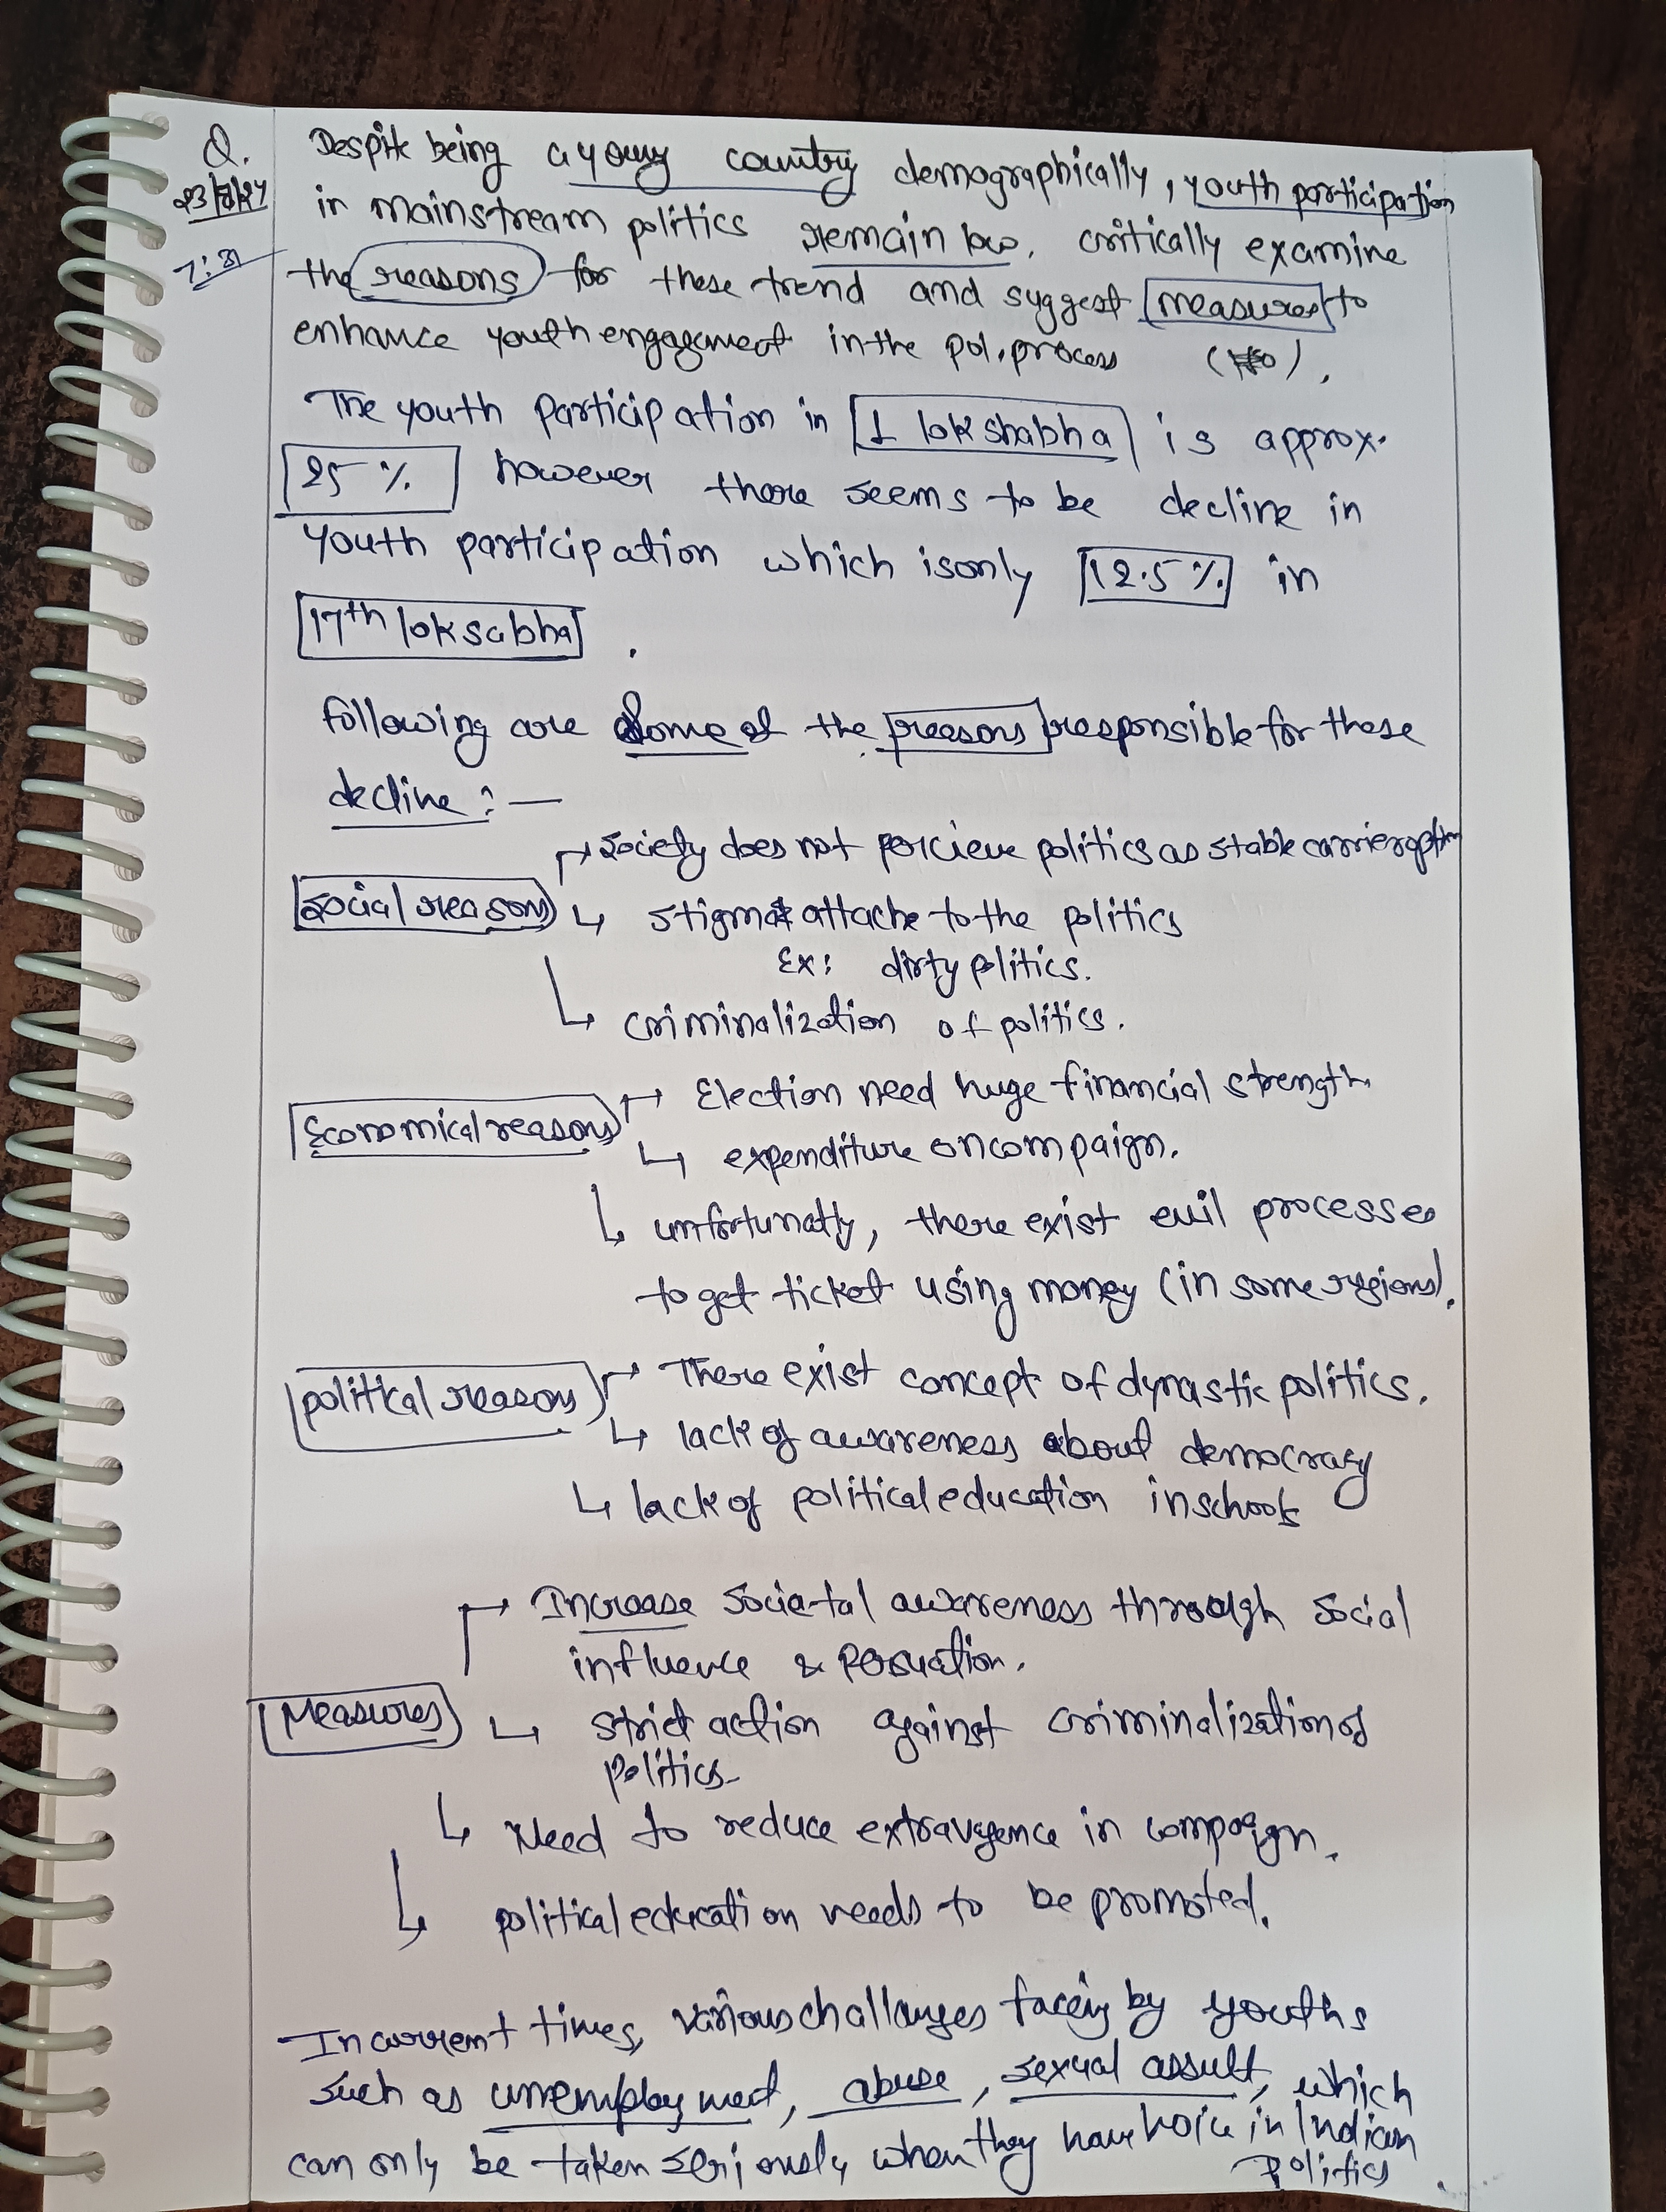 Q. Despite being a young country demographically, youth participation
23/7/24 in mainstream politics remain low. critically examine
7:31 the reasons for these trend and suggest measures to
enhance youth engagement in the pol. process
The youth participation in 1 lok shabha is approx.
25 % however there seems to be decline in
youth participation which is only 12.5 % in
17th lok sabha .
following are some of the reasons responsible for these
decline : —
→ society does not percieve politics as stable carrier option
Social reasons ↳ stigma attache to the politics
Ex: dirty politics.
↳ criminalization of politics.
→ Election need huge financial strength
Economical reasons ↳ expenditure on compaign.
↳ unfortunatly, there exist evil processes
to get ticket using money (in some regions).
political reasons → There exist concept of dynastic politics.
↳ lack of awareness about democracy
↳ lack of political education in schools
→ Increase societal awareness through social
influence & Persuation.
Measures ↳ strict action against criminalization of
politics
↳ Need to reduce extravgence in compaign.
↳ political education needs to be promoted.
In current times, various challanges faceing by youths
such as unemployment, abuse, sexual assult, which
can only be taken seriously when they have voice in Indian
Politics